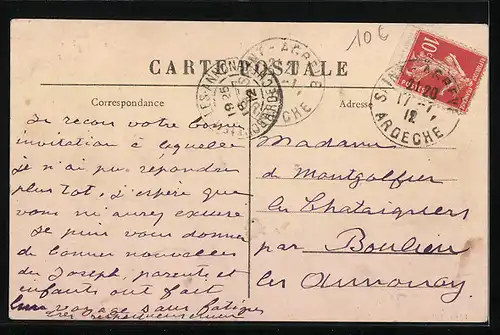 10 €
CARTE POSTALE
Correspondance
Adresse
10c
SAINT-AGREVE
17-1
12
ARDECHE
Je reçois votre bonne
invitation à laquelle
je n'ai pu répondre
plus tôt, j'espère que
vous m'aurez excusé
Je puis vous donner
de bonnes nouvelles
de Joseph, parents et
enfants ont fait
leur voyage sans fatigue
très respectueusement
Madame
de Montgolfier
les Chataigniers
par Boulieu
les Annonay